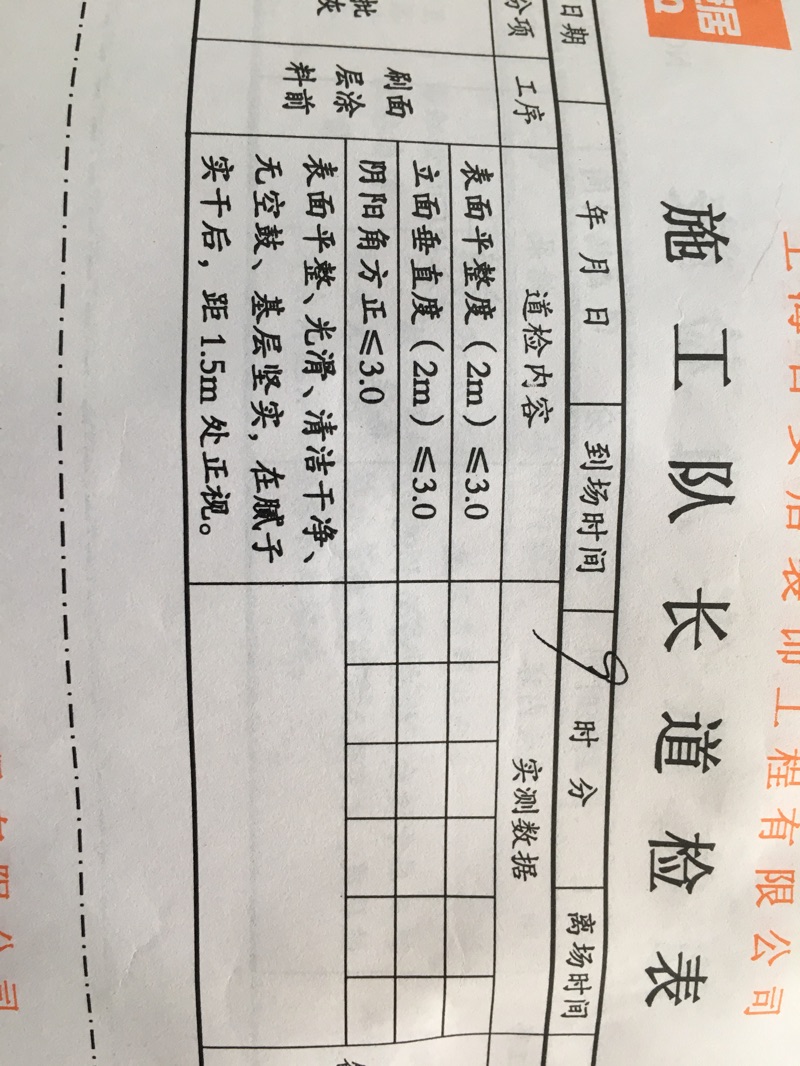 居
上海百安居装饰工程有限公司
施工队长道检表
日期 年 月 日 到场时间 9 时 分 离场时间
分项 工序 道检内容 实测数据
批
刷面
层涂
料前
表面平整度（2m）≤3.0
立面垂直度（2m）≤3.0
阴阳角方正≤3.0
表面平整、光滑、清洁干净、
无空鼓、基层坚实，在腻子
实干后，距 1.5m 处正视。
限公司